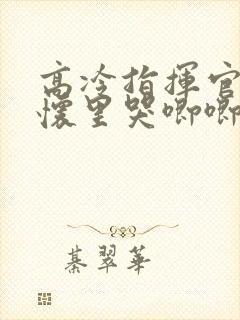 高冷指揮官
懷里哭唧唧
綦翠華